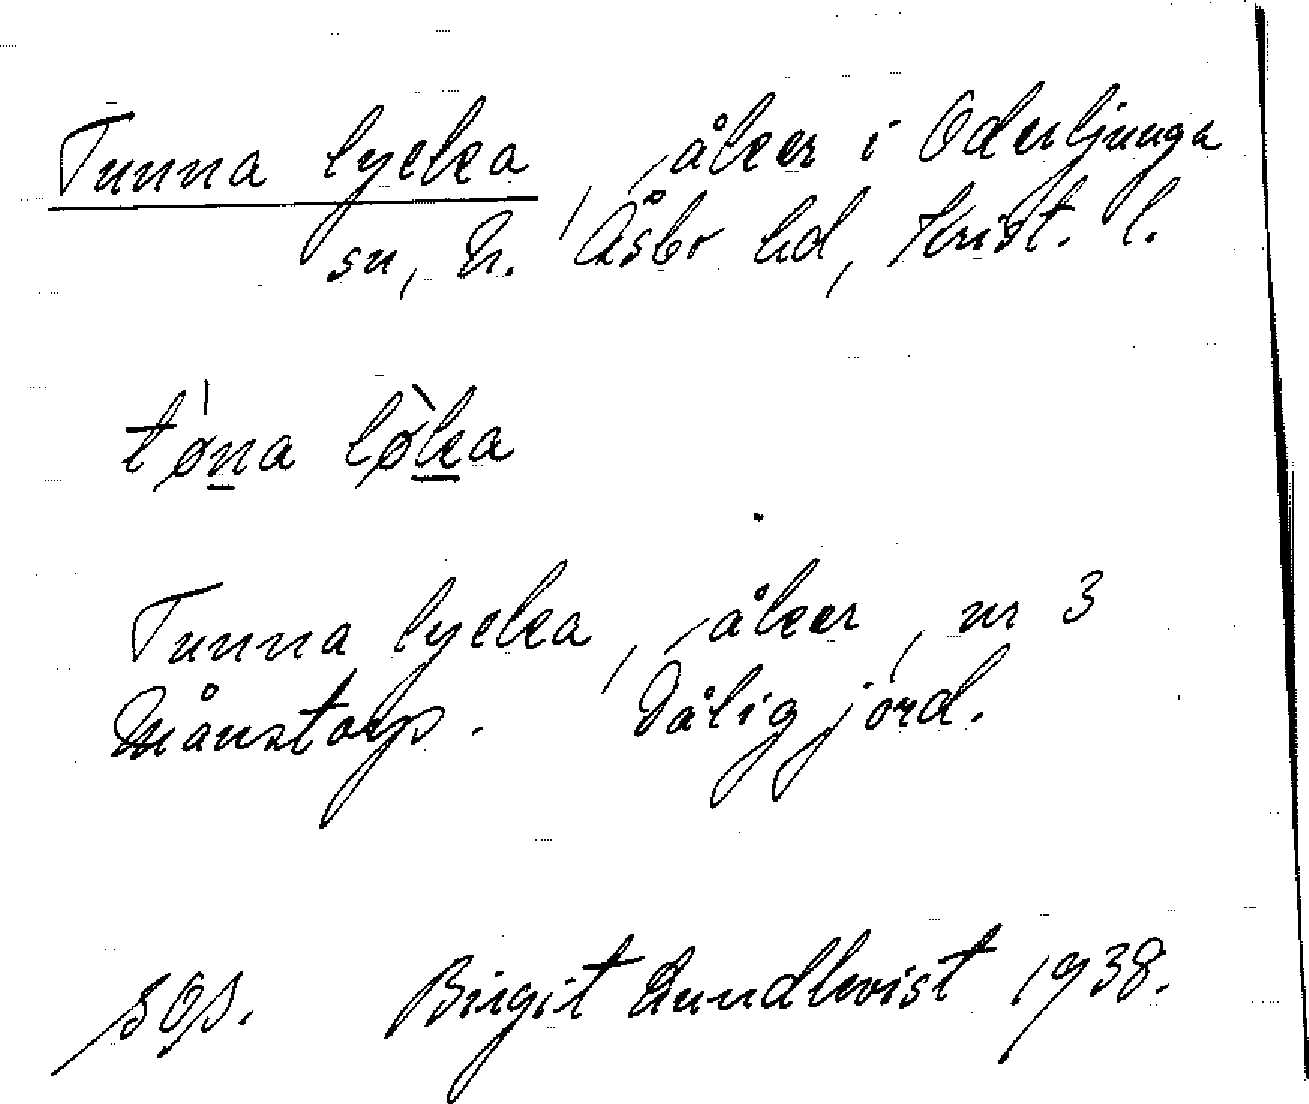 Tunna lycka, åker i Oderljunga
sn, N. Åsbo hd, Krist. l.
tøna løka
Tunna lycka, åker, nr 3
Månstorp. Dålig jord.
Birgit Lundkvist 1938.